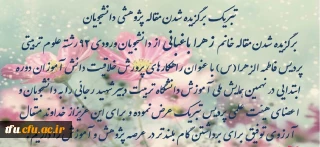 تبریک برگزیده شدن مقاله پژوهشی دانشجویان
برگزیده شدن مقاله خانم زهرا باغبانی از دانشجویان ورودی ۹۲ رشته علوم تربیتی
پردیس فاطمه الزهرا (س) با عنوان راهکارهای پرورش خلاقیت دانش آموزان دوره
ابتدایی در نهمین همایش ملی آموزش دانشگاه تربیت دبیر شهید رجائی را به دانشجویان و
اعضای هیئت علمی پردیس تبریک عرض نموده و برای این عزیز از خداوند متعال
آرزوی توفیق برای برداشتن گام بلندتر در عرصه پژوهش و آموزش
dfu.cfu.ac.ir